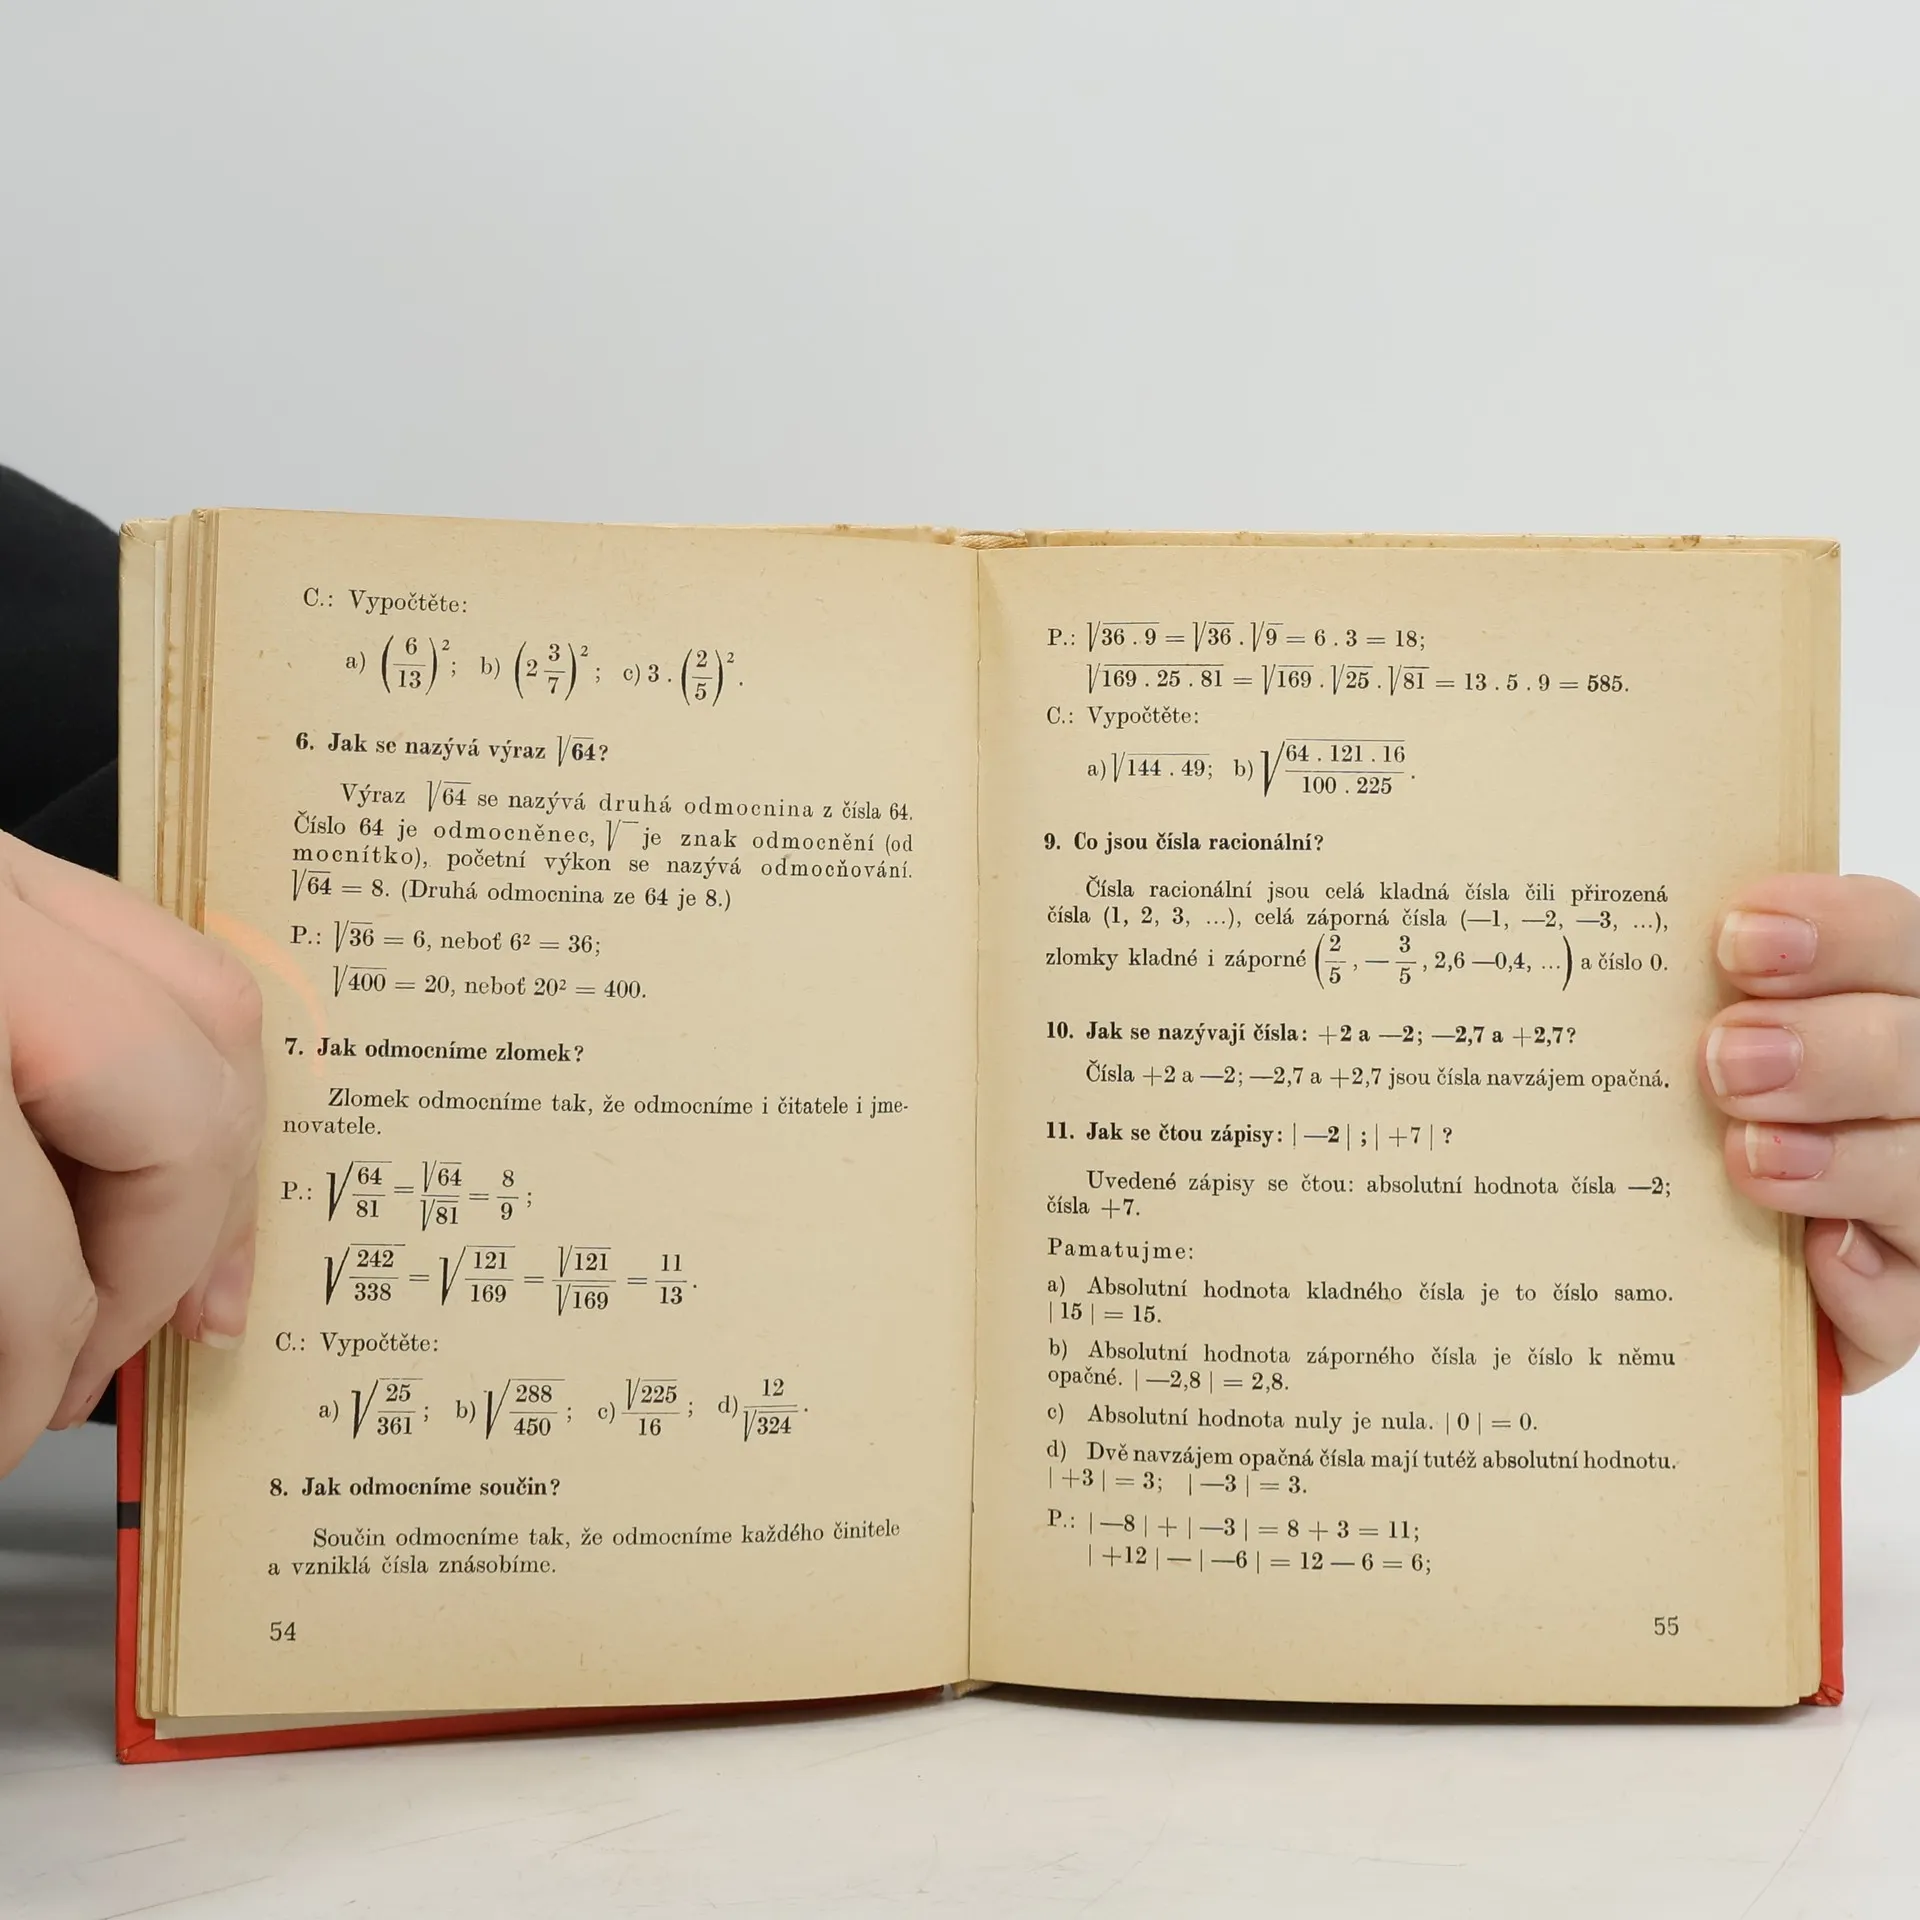 C.: Vypočtěte:
a) (6/13)²; b) (2 3/7)²; c) 3 . (2/5)².
6. Jak se nazývá výraz √64?
Výraz √64 se nazývá druhá odmocnina z čísla 64.
Číslo 64 je odmocněnec, √ je znak odmocnění (od
mocnítko), početní výkon se nazývá odmocňování.
√64 = 8. (Druhá odmocnina ze 64 je 8.)
P.: √36 = 6, neboť 6² = 36;
√400 = 20, neboť 20² = 400.
7. Jak odmocníme zlomek?
Zlomek odmocníme tak, že odmocníme i čitatele i jme-
novatele.
P.: √(64/81) = √64/√81 = 8/9;
√(242/338) = √(121/169) = √121/√169 = 11/13.
C.: Vypočtěte:
a) √(25/361); b) √(288/450); c) √225/16; d) 12/√324.
8. Jak odmocníme součin?
Součin odmocníme tak, že odmocníme každého činitele
a vzniklá čísla znásobíme.
54
P.: √(36 . 9) = √36 . √9 = 6 . 3 = 18;
√(169 . 25 . 81) = √169 . √25 . √81 = 13 . 5 . 9 = 585.
C.: Vypočtěte:
a) √(144 . 49); b) √((64 . 121 . 16)/(100 . 225)).
9. Co jsou čísla racionální?
Čísla racionální jsou celá kladná čísla čili přirozená
čísla (1, 2, 3, ...), celá záporná čísla (—1, —2, —3, ...),
zlomky kladné i záporné (2/5, —3/5, 2,6 —0,4, ...) a číslo 0.
10. Jak se nazývají čísla: +2 a —2; —2,7 a +2,7?
Čísla +2 a —2; —2,7 a +2,7 jsou čísla navzájem opačná.
11. Jak se čtou zápisy: | —2 | ; | +7 | ?
Uvedené zápisy se čtou: absolutní hodnota čísla —2;
čísla +7.
Pamatujme:
a) Absolutní hodnota kladného čísla je to číslo samo.
| 15 | = 15.
b) Absolutní hodnota záporného čísla je číslo k němu
opačné. | —2,8 | = 2,8.
c) Absolutní hodnota nuly je nula. | 0 | = 0.
d) Dvě navzájem opačná čísla mají tutéž absolutní hodnotu.
| +3 | = 3; | —3 | = 3.
P.: | —8 | + | —3 | = 8 + 3 = 11;
| +12 | — | —6 | = 12 — 6 = 6;
55